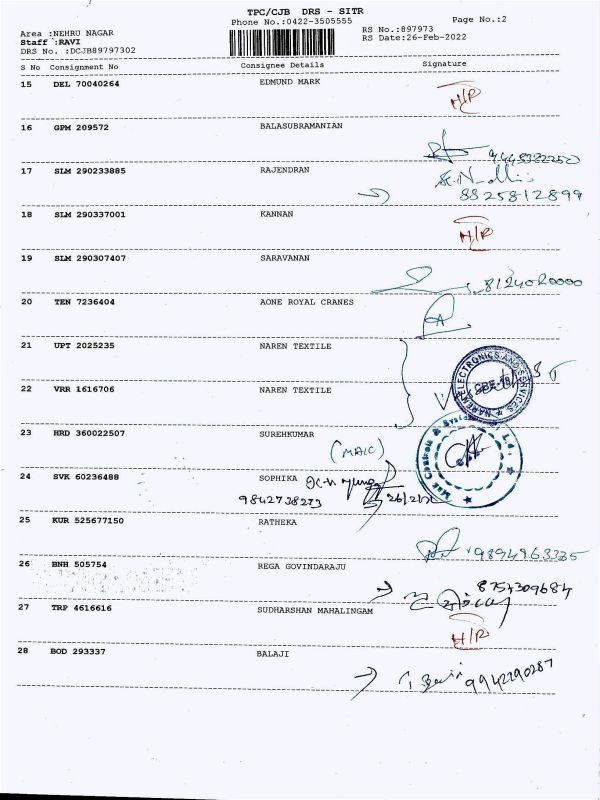 TPC/CJB DRS - SITR
Phone No.:0422-3505555
Page No.:2
Area :NEHRU NAGAR
Staff :RAVI
DRS No. :DCJB89797302
RS No.:897973
RS Date:26-Feb-2022
S No Consignment No Consignee Details Signature
15 DEL 70040264 EDMUND MARK
H/R
16 GPM 209572 BALASUBRAMANIAN
17 SLM 290233885 RAJENDRAN
8825812899
18 SLM 290337001 KANNAN
H/R
19 SLM 290307407 SARAVANAN
8124020000
20 TEN 7236404 AONE ROYAL CRANES
21 UPT 2025235 NAREN TEXTILE
22 VRR 1616706 NAREN TEXTILE
ELECTRONICS AND SERVICES
23 HRD 360022507 SUREHKUMAR
(MAIC)
24 SVK 60236488 SOPHIKA
9842738273
25 KUR 525677150 RATHEKA
9894963335
26 BNH 505754 REGA GOVINDARAJU
8754309684
27 TRP 4616616 SUDHARSHAN MAHALINGAM
H/R
28 BOD 293337 BALAJI
9942290287